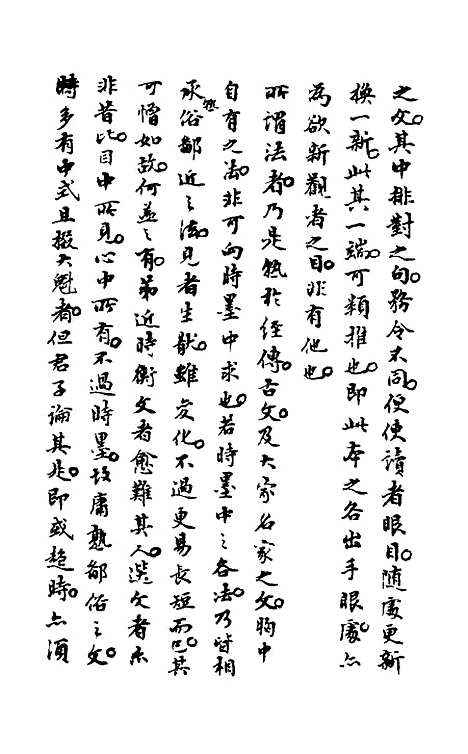 之文其中排對之句務令不同便使讀者眼目隨處更新
換一新此其一端可類推也即此本之各出手眼處亦
為欲新觀者之目非有他也
所謂法者乃是熟於經傳古文及大家名家之文胸中
自有之法非可向時墨中求也若時墨中之各法乃皆相
承俗鄙近之法見者生厭雖變化不過更易長短而已其
可憎如故何益之有第近時衡文者愈難其人選文者亦
非昔比目中所見心中所有不過時墨故庸熟鄙俗之文
時多有中式且掇大魁者但君子論其是即或趨時亦須